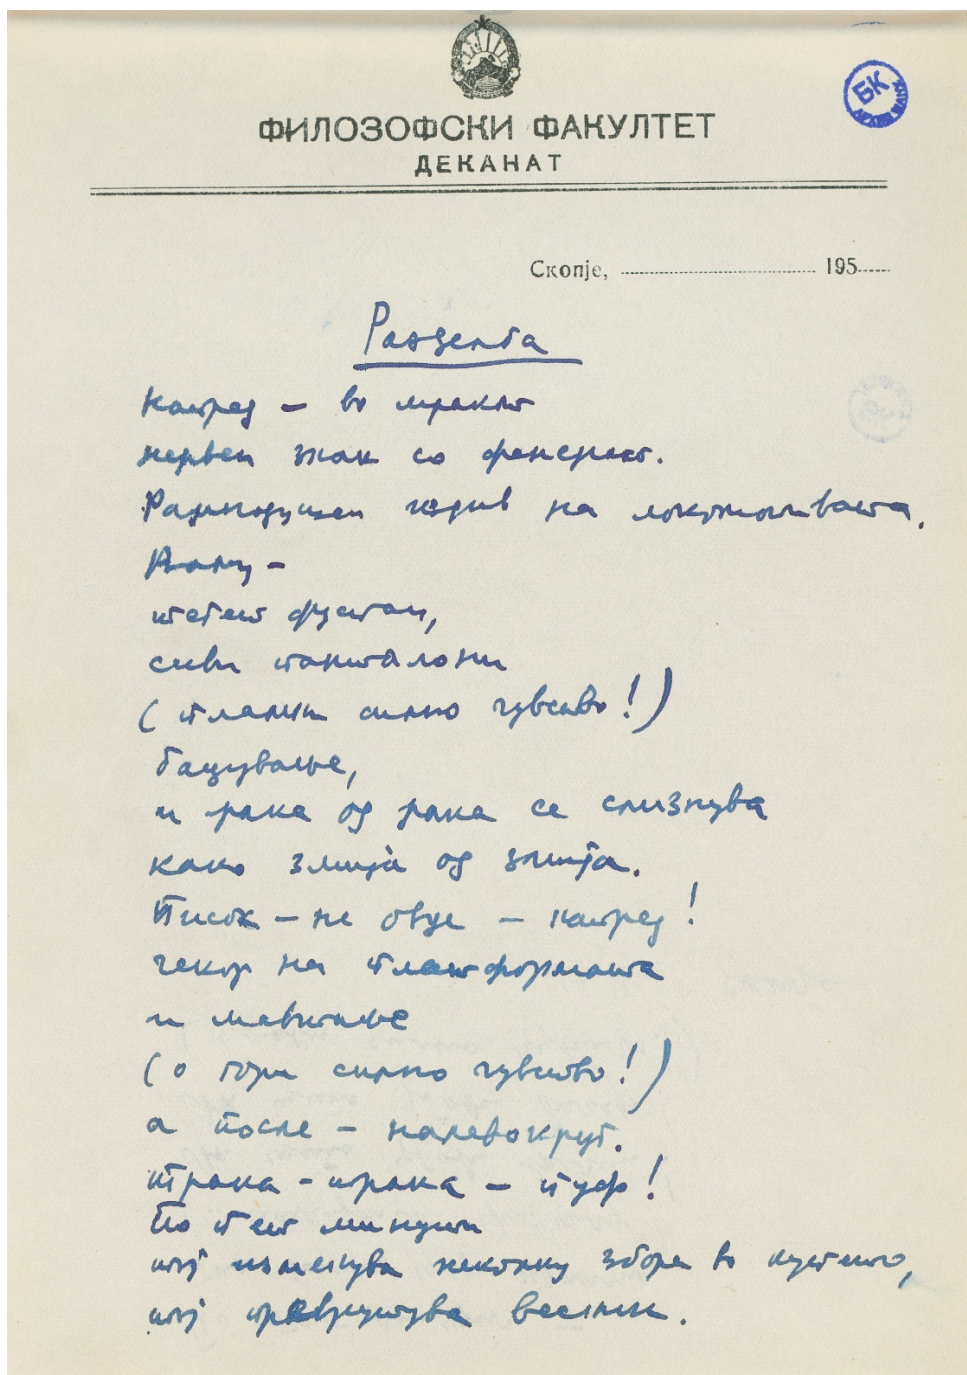 ФИЛОЗОФСКИ ФАКУЛТЕТ
ДЕКАНАТ
БК
Скопје, 195
Разделба
Напред – во мракот
нервен знак со фенерот.
Рамнодушен издив на локомотивата.
Долу –
шетен фустан,
сиви панталони
(пламти силно чувство!)
бацување,
и рака од рака се слизнува
како змија од змија.
Писок – не овде – напред!
чекор на платформата
и мавтање
(о гори силно чувство!)
а после – налевокруг.
трака-трака – пуф!
По пет минути
тој изменува неколку збора во купето,
тој превртува весник.